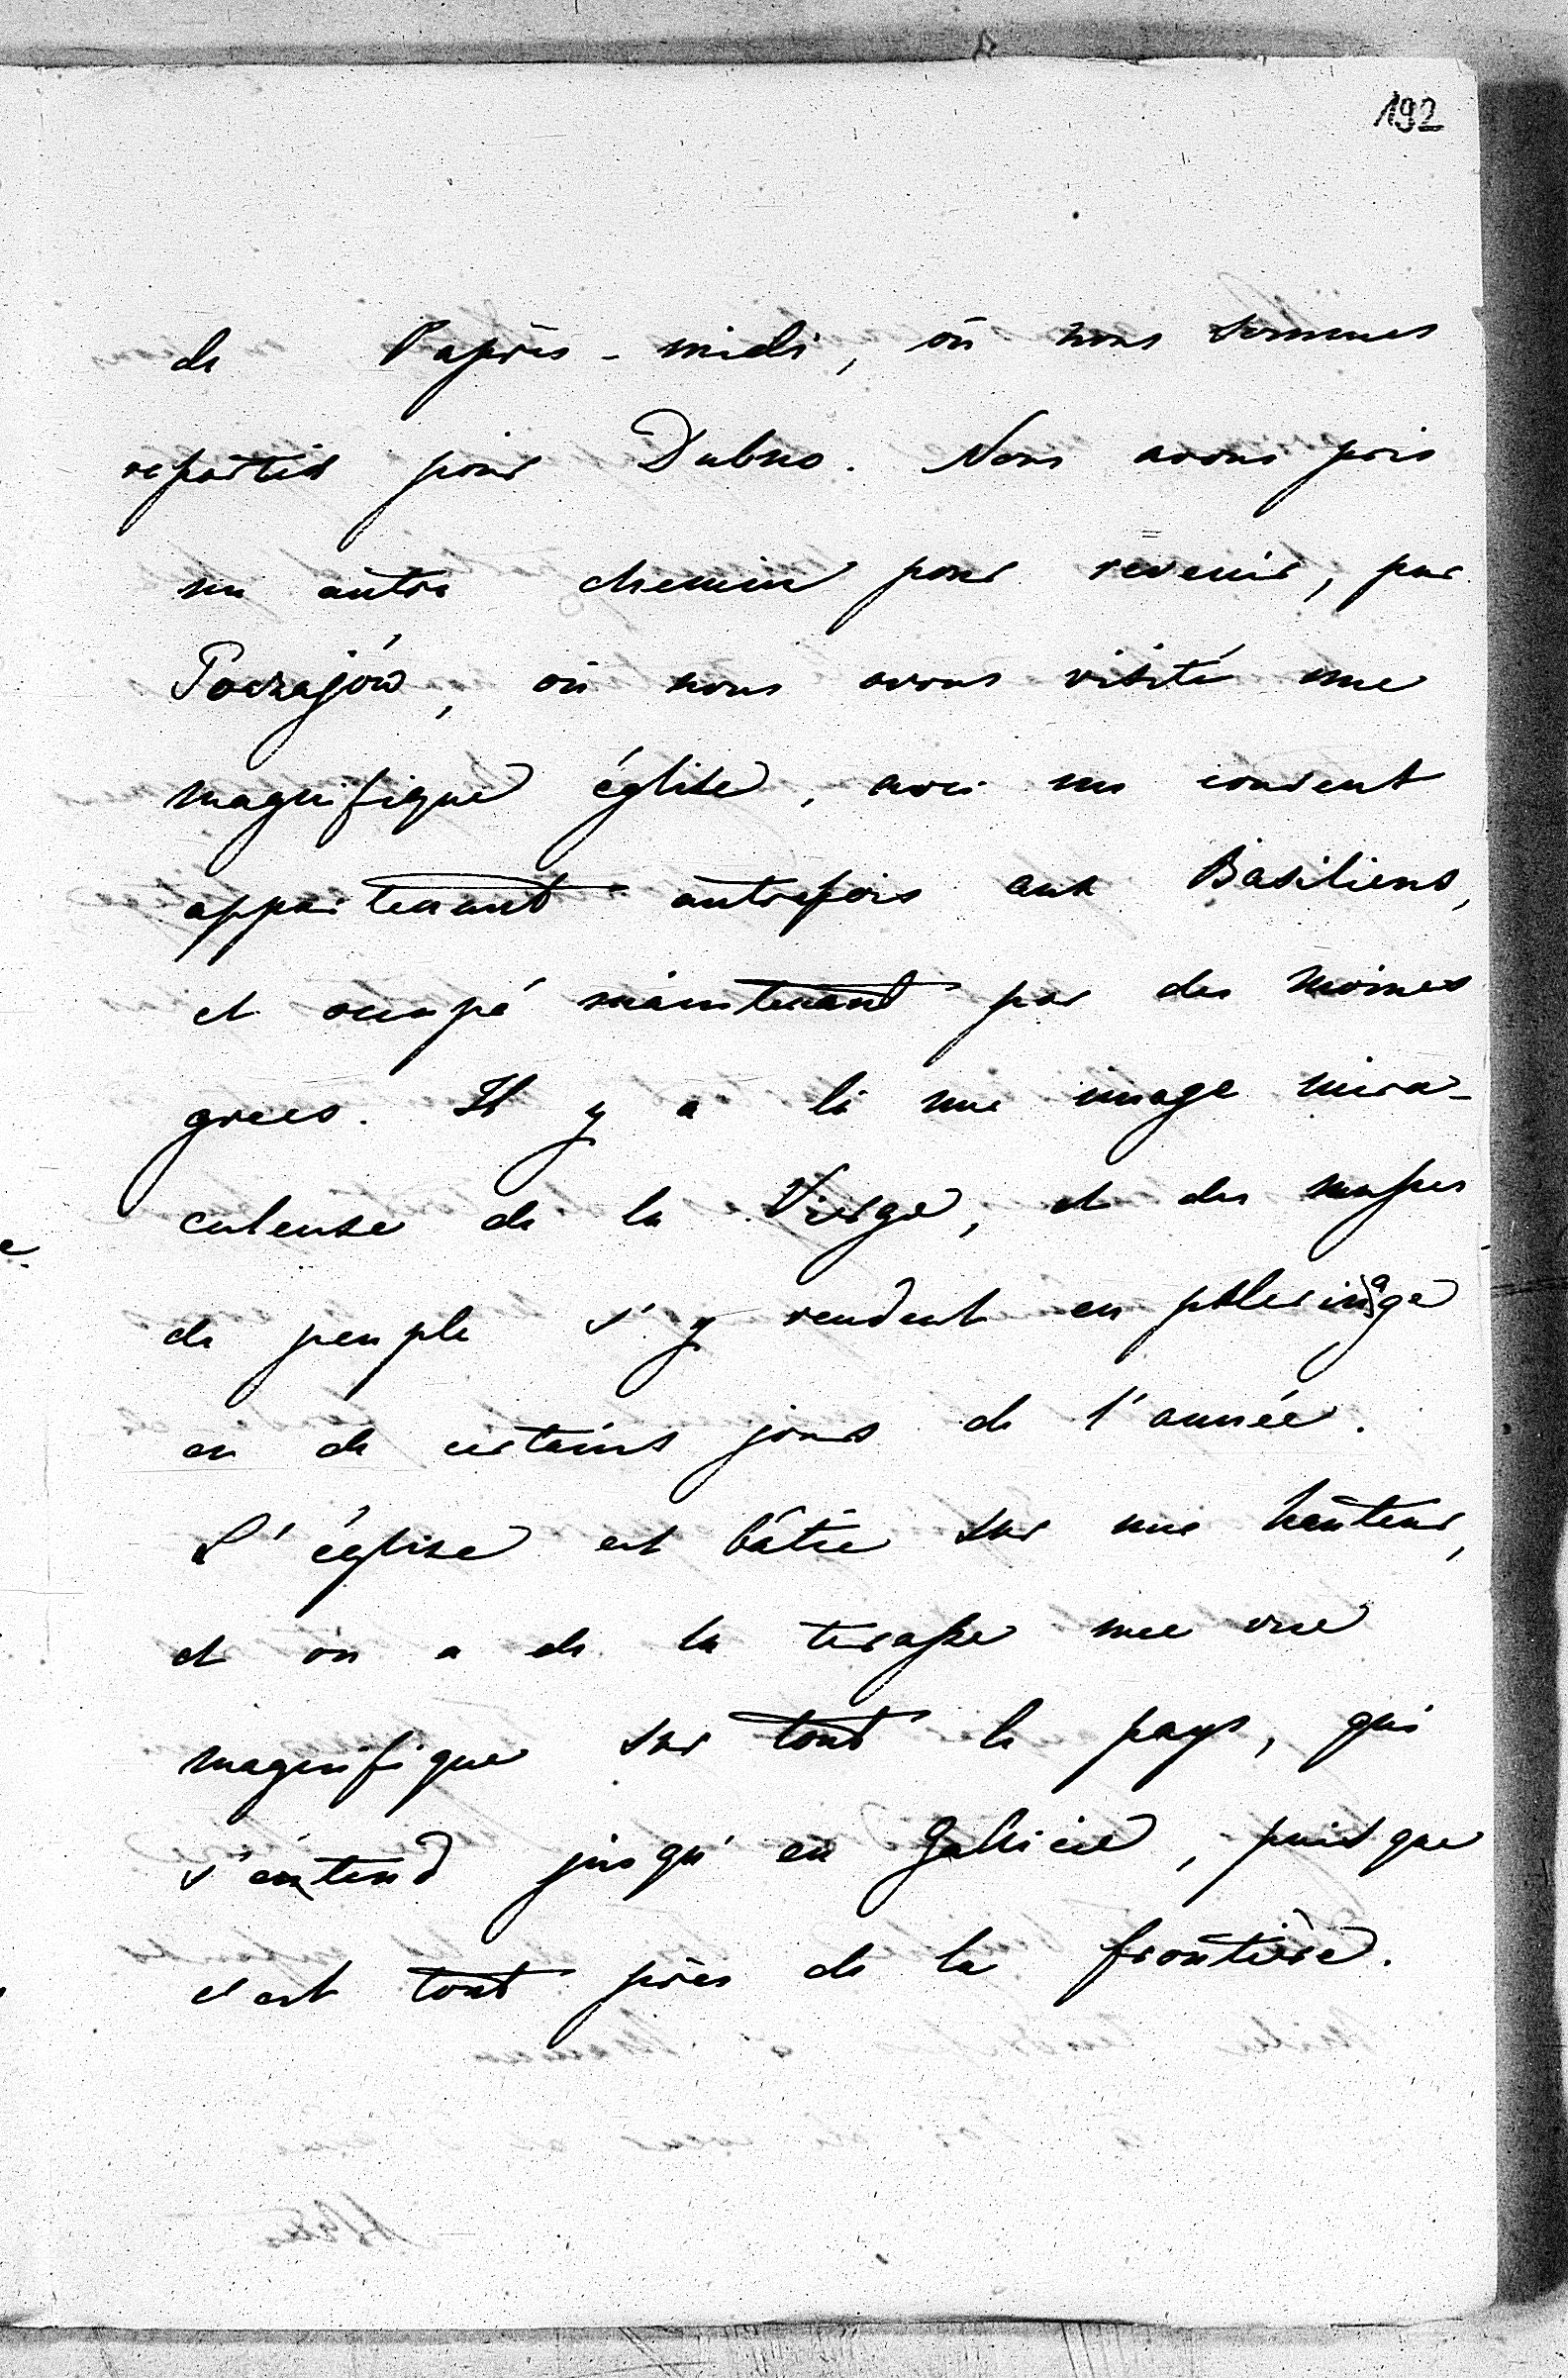 192
de l'après-midi, où nous sommes
repartis pour Dubno. Nous avons pris
un autre chemin pour revenir, par
Poczajów, où nous avons visité une
magnifique église, avec un couvent
appartenant autrefois aux Basiliens,
et occupé maintenant par des moines
grecs. Il y a là une image mira-
culeuse de la Vierge, et des masses
de peuple s'y rendent en pèlerinage
en de certains jours de l'année.
L'église est bâtie sur une hauteur,
et on a de la terasse une vue
magnifique sur tout le pays, qui
s'entend jusqu'en Gallicie, puisque
c'est tout près de la frontière.